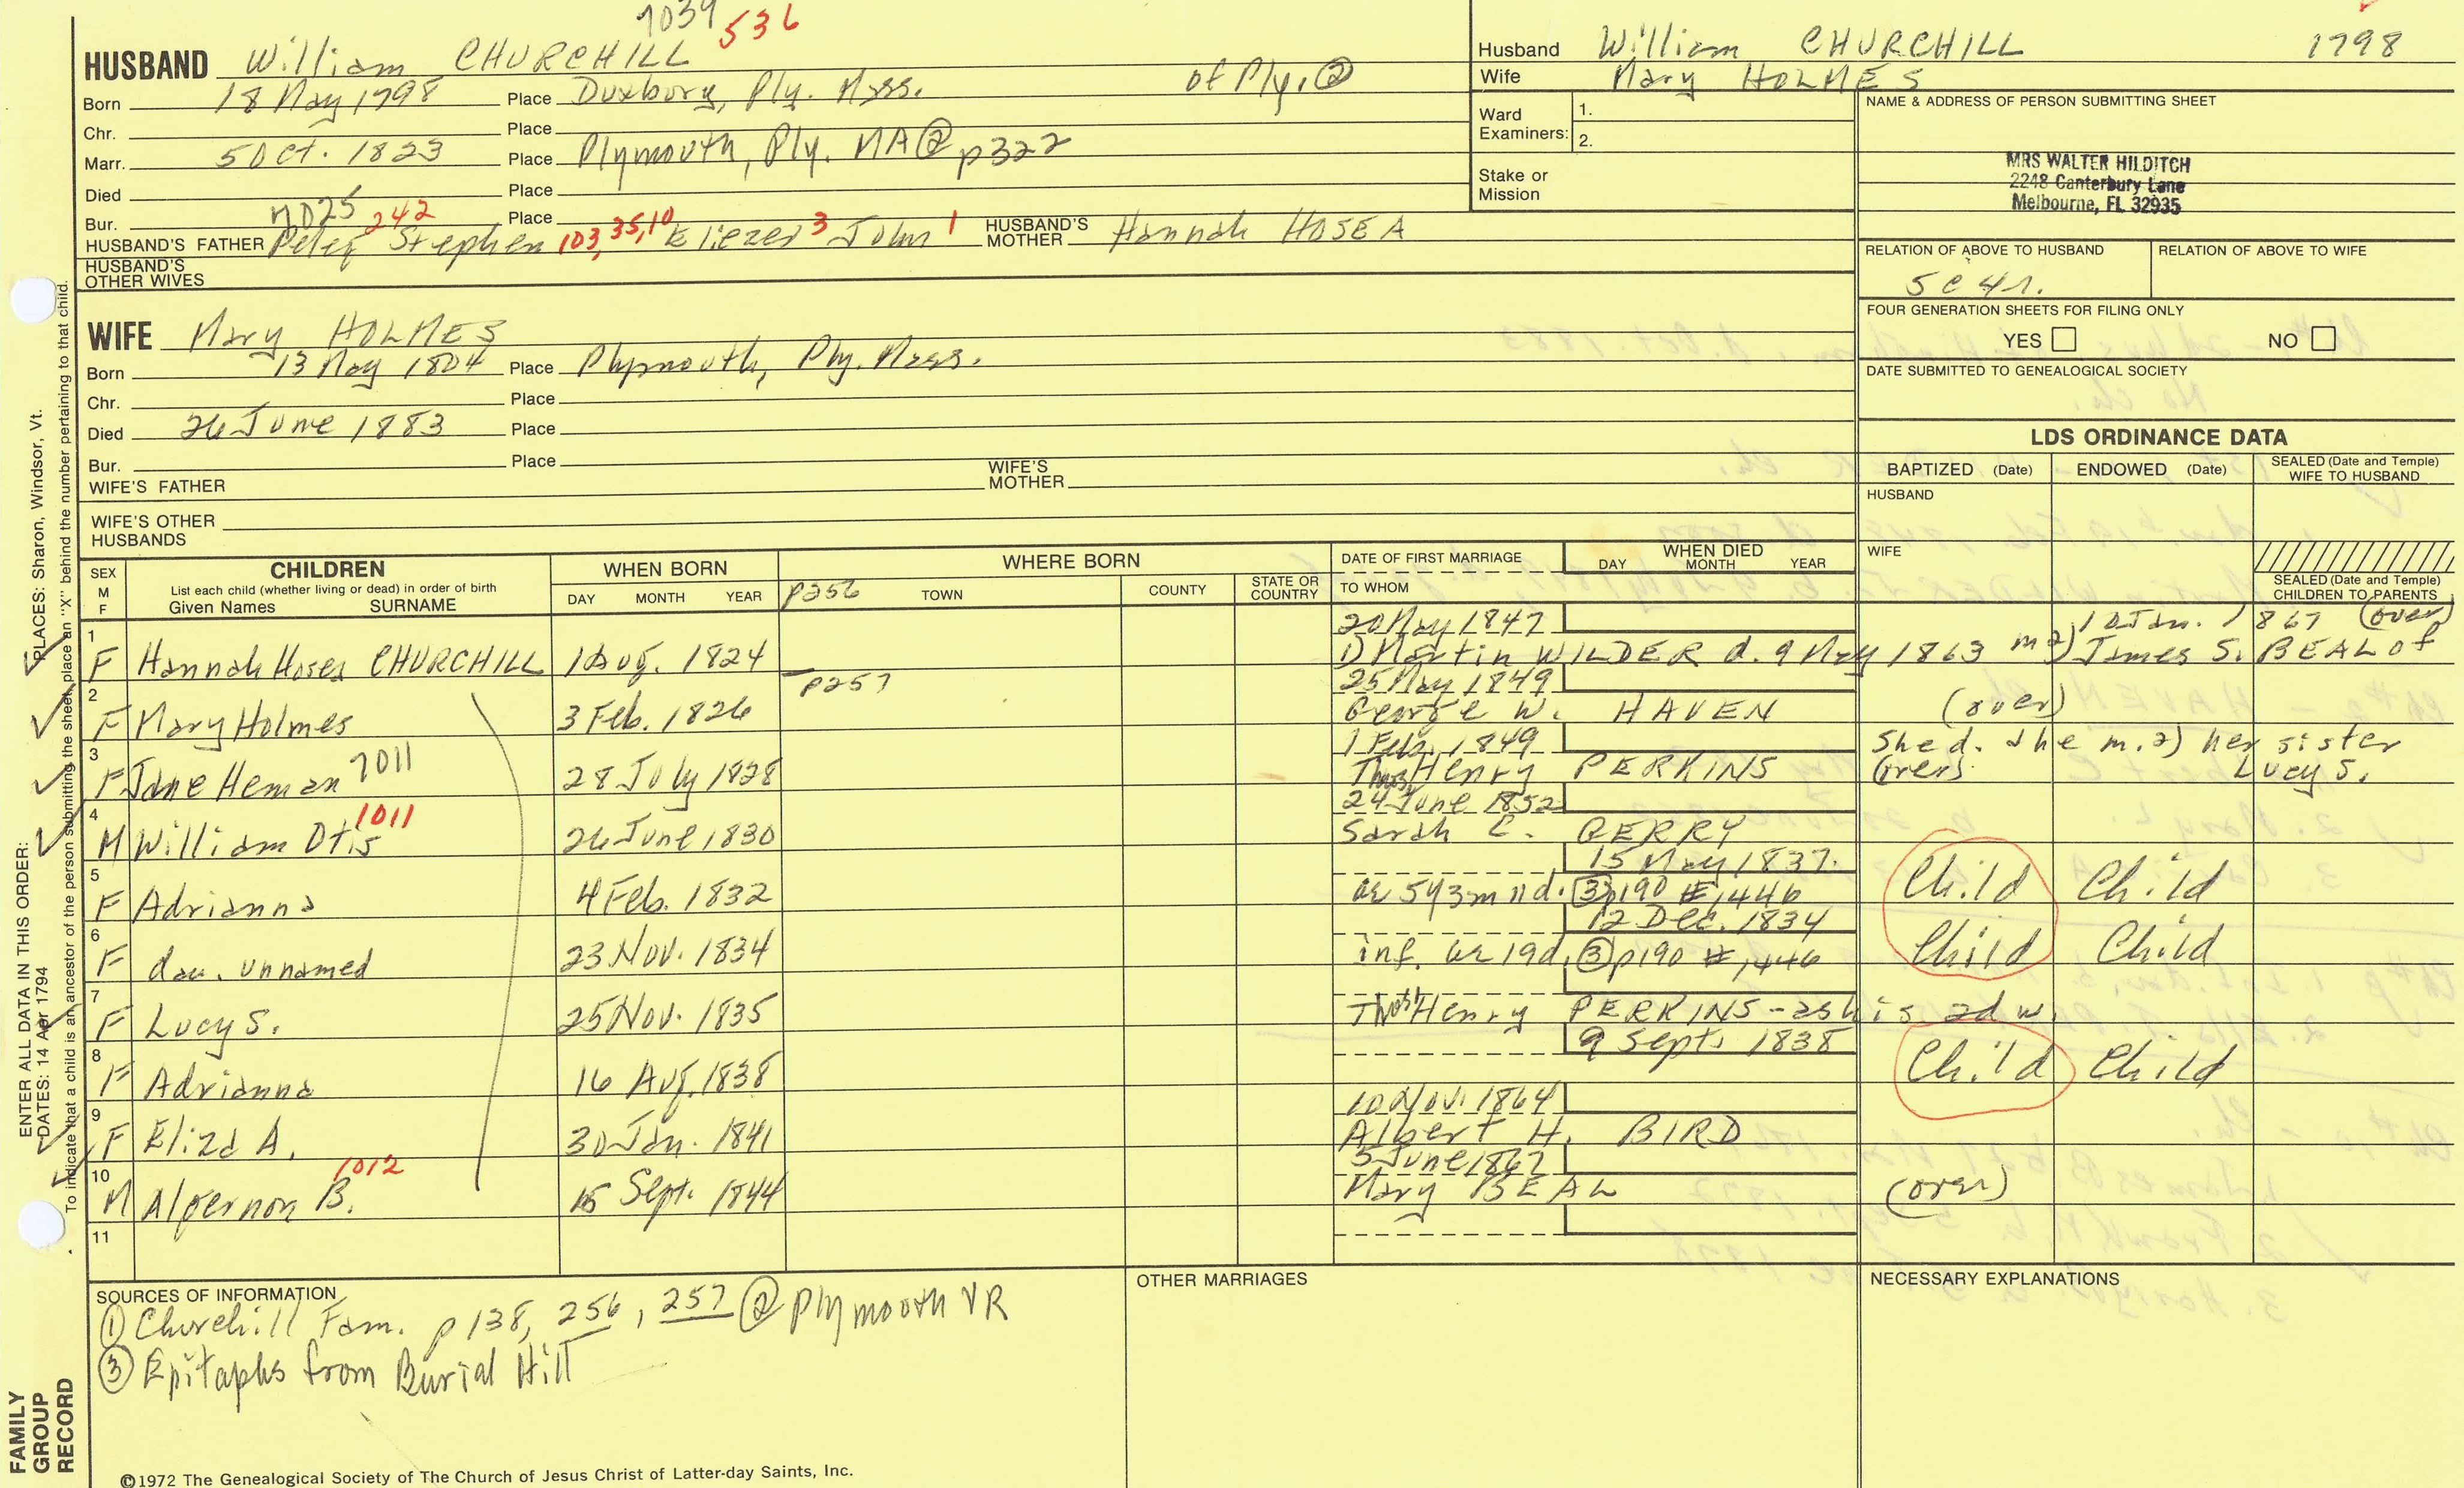 7039 536
HUSBAND William CHURCHILL
Born 18 May 1798 Place Duxbury, Ply. Mass. of Ply. ②
Chr. Place
Marr. 5 Oct. 1823 Place Plymouth, Ply. MA ② p322
Died Place
Bur. Place
HUSBAND'S FATHER Peleg 242 Stephen 103, 35, 10 Eliezer 3 John 1 HUSBAND'S MOTHER Hannah HOSEA
HUSBAND'S OTHER WIVES
WIFE Mary HOLMES
Born 13 May 1804 Place Plymouth, Ply. Mass.
Chr. Place
Died 26 June 1883 Place
Bur. Place
WIFE'S FATHER WIFE'S MOTHER
WIFE'S OTHER HUSBANDS
Husband William CHURCHILL 1798
Wife Mary HOLMES
Ward Examiners: 1.
2.
Stake or Mission
NAME & ADDRESS OF PERSON SUBMITTING SHEET
MRS WALTER HILDITCH
2248 Canterbury Lane
Melbourne, FL 32935
RELATION OF ABOVE TO HUSBAND RELATION OF ABOVE TO WIFE
5c4r.
FOUR GENERATION SHEETS FOR FILING ONLY
YES NO
DATE SUBMITTED TO GENEALOGICAL SOCIETY
LDS ORDINANCE DATA
BAPTIZED (Date) ENDOWED (Date) SEALED (Date and Temple) WIFE TO HUSBAND
HUSBAND
WIFE
SEALED (Date and Temple) CHILDREN TO PARENTS
SEX M F CHILDREN List each child (whether living or dead) in order of birth Given Names SURNAME
WHEN BORN DAY MONTH YEAR
WHERE BORN p256 TOWN COUNTY STATE OR COUNTRY
DATE OF FIRST MARRIAGE TO WHOM
WHEN DIED DAY MONTH YEAR
20 May 1847 10 Jan. 1867 (over)
1 F Hannah Hosea CHURCHILL 1 Aug. 1824 1) Martin WILDER d. 9 May 1863 m 2) James S. BEAL of
p257 25 May 1849
2 F Mary Holmes 3 Feb. 1826 George W. HAVEN (over)
1 Feb. 1849 She d. & he m. 2) her sister
3 F Jane Heman 7011 28 July 1828 Thos. Henry PERKINS (over) Lucy S.
24 June 1852
4 M William Otis 1011 26 June 1830 Sarah C. BERRY
15 May 1837.
5 F Adrianna 4 Feb. 1832 ae 5y3m11d. ③ p190 #1,446 Child Child
12 Dec. 1834
6 F dau. unnamed 23 Nov. 1834 inf. ae 19d. ③ p190 #1,446 Child Child
7 F Lucy S. 25 Nov. 1835 Thos. Henry PERKINS - as his 2d w.
9 Sept. 1838
8 F Adrianna 16 Aug. 1838 Child Child
10 Nov. 1864
9 F Eliza A. 30 Jan. 1841 Albert H. BIRD
5 June 1867
10 M Algernon B. 1012 15 Sept. 1844 Mary BEAL (over)
11
SOURCES OF INFORMATION
① Churchill Fam. p 138, 256, 257 ② Plymouth VR
③ Epitaphs from Burial Hill
OTHER MARRIAGES
NECESSARY EXPLANATIONS
©1972 The Genealogical Society of The Church of Jesus Christ of Latter-day Saints, Inc.
FAMILY GROUP RECORD
ENTER ALL DATA IN THIS ORDER:
DATES: 14 Apr 1794
PLACES: Sharon, Windsor, Vt.
To indicate that a child is an ancestor of the person submitting the sheet, place an "X" behind the number pertaining to that child.